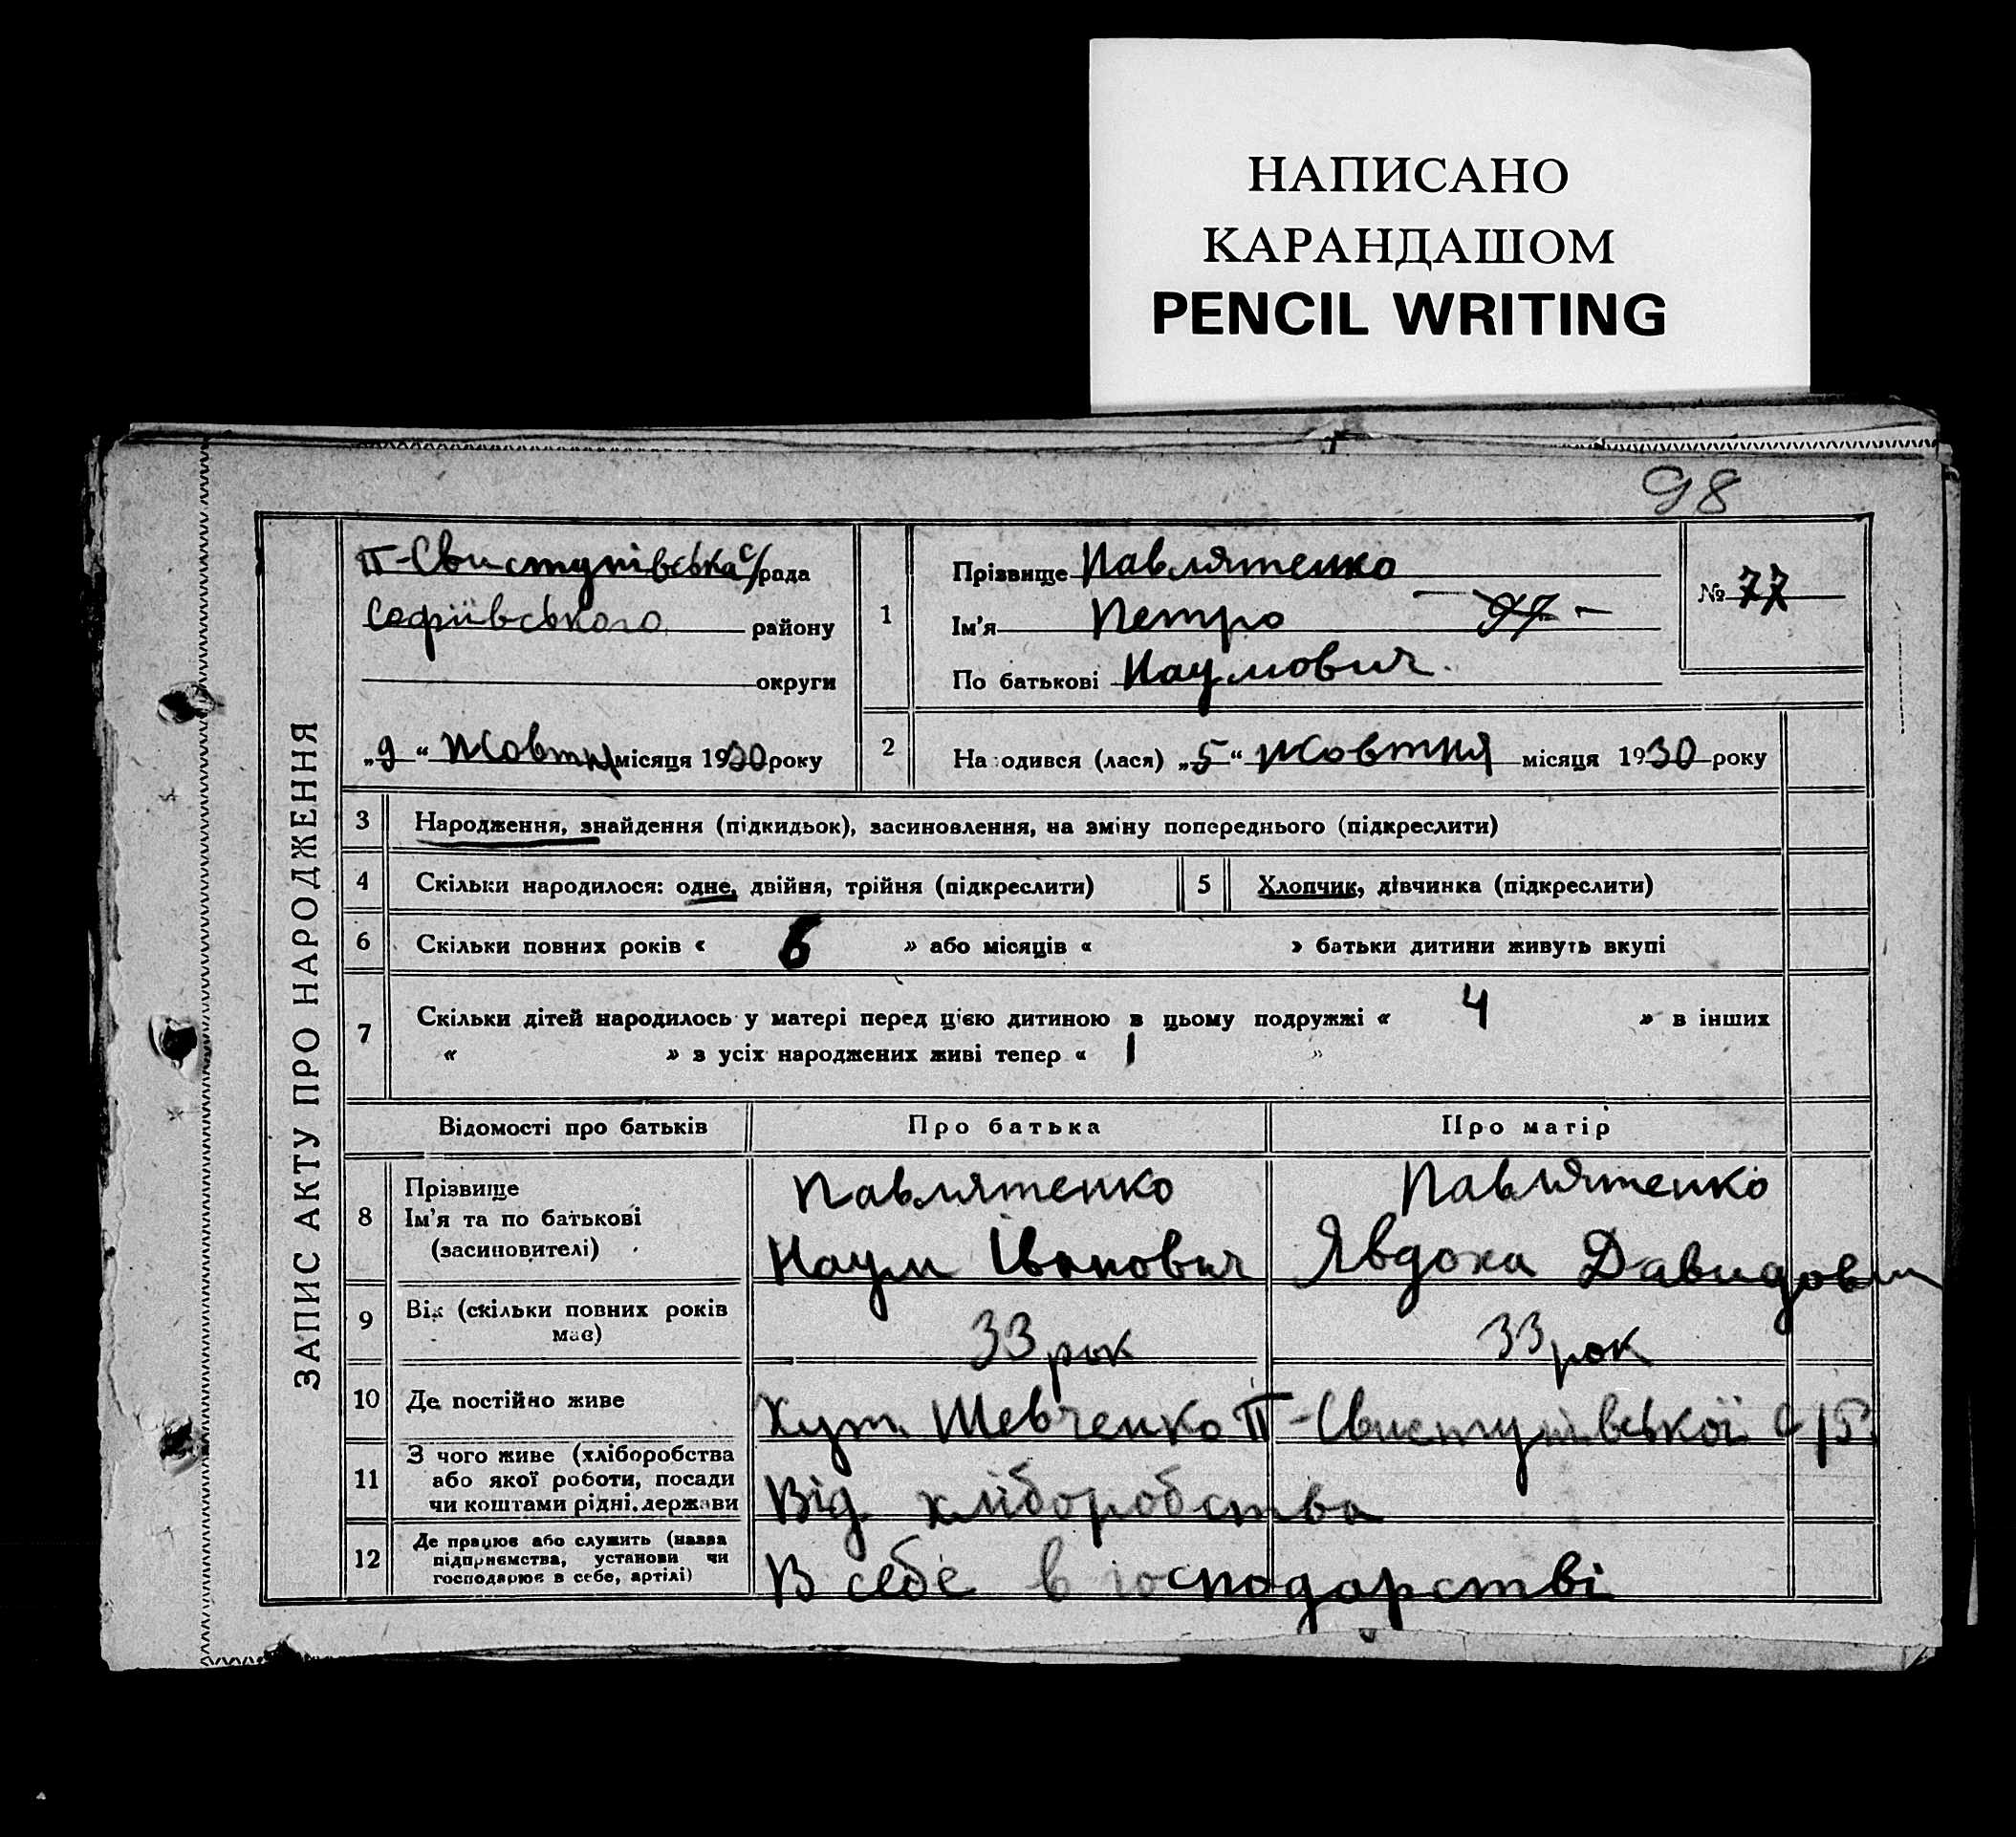 НАПИСАНО
КАРАНДАШОМ
PENCIL WRITING
98
ЗАПИС АКТУ ПРО НАРОДЖЕННЯ
П-Свистунівська с/рада
Софіївського району
округи
„9“ Жовтня місяця 1930 року
1
Прізвище Павлятенко
Ім'я Петро
По батькові Наумович.
№ 77
2 На одився (лася) „5“ Жовтня місяця 1930 року
3 Народження, знайдення (підкидьок), засиновлення, на зміну попереднього (підкреслити)
4 Скільки народилося: одне, двійня, трійня (підкреслити) 5 Хлопчик, дівчинка (підкреслити)
6 Скільки повних років « 6 » або місяців « » батьки дитини живуть вкупі
7 Скільки дітей народилось у матері перед цією дитиною в цьому подружжі « 4 » в інших
« » з усіх народжених живі тепер « 1 »
Відомості про батьків Про батька Про матір
8 Прізвище Павлятенко Павлятенко
Ім'я та по батькові
(засиновителі) Наум Іванович Явдоха Давидовн
9 Вік (скільки повних років
має) 33 рок 33 рок
10 Де постійно живе Хут. Шевченко П-Свистунівської с/р.
11 З чого живе (хліборобства
або якої роботи, посади
чи коштами рідні. держави Від хліборобства
12 Де працює або служить (назва
підприємства, установи чи
господарює в себе, артілі) В себе в господарстві